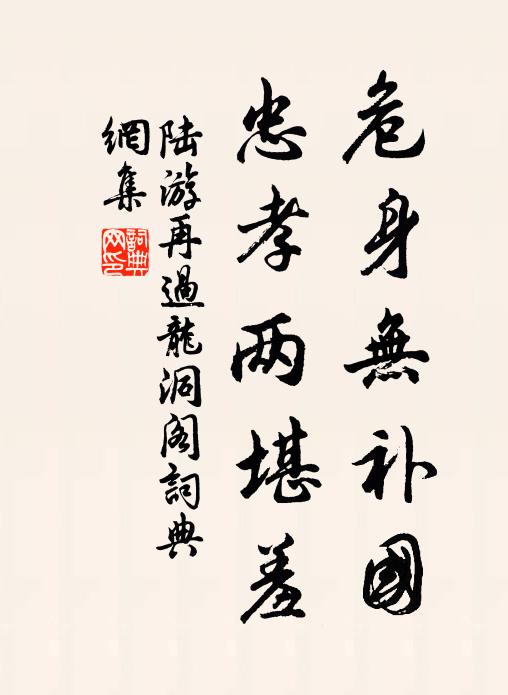 危身無补國
忠孝两堪羞
陆游再過龍洞阁詞典
網集
詞典網印